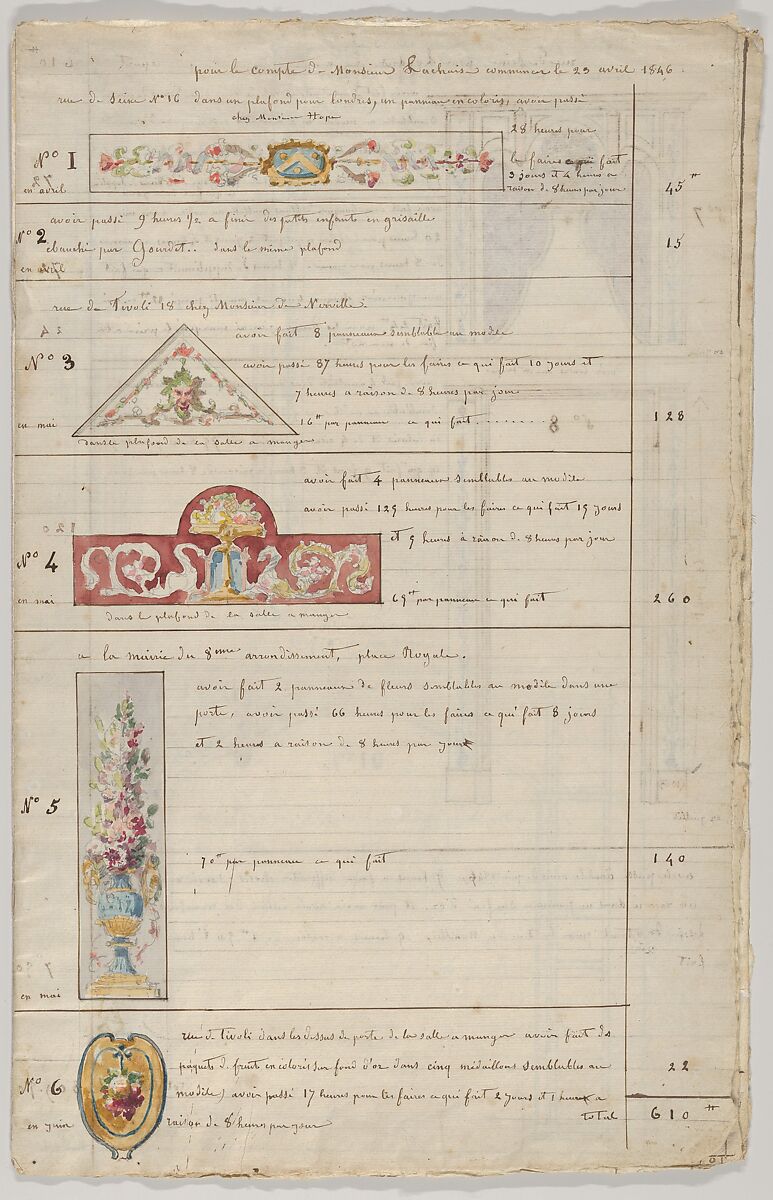 pour le compte de Monsieur Lachaise commencer le 23 avril 1846
rue de Seine No 16 dans un plafond pour londres, un panneau en coloris, avoir passé
chez Monsieur Hope
28 heures pour
No 1
les faires ce qui fait
3 jours et 4 heures a
en avril
raison de 8 heures par jour
45 tt
avoir passé 9 heures 1/2 a finir des petits enfants en grisaille
No 2
15
ebauché par Gourdet.. dans le même plafond
en avril
rue de Tivoli 18 chez Monsieur de Nerville.
avoir fait 8 panneaux semblable au modele
No 3
avoir passé 87 heures pour les faires ce qui fait 10 jours et
7 heures a raison de 8 heures par jour
en mai
16 tt par panneau ce qui fait ........
128
dans le plafond de la salle a manger
avoir fait 4 panneaux semblables au modele
avoir passé 129 heures pour les faires ce qui fait 15 jours
et 9 heures à raison de 8 heures par jour
No 4
en mai
69 tt par panneau ce qui fait
260
dans le plafond de la salle a manger
a la mairie du 8eme arrondissement, place Royale.
avoir fait 2 panneaux de fleurs semblables au modele dans une
porte, avoir passé 66 heures pour les faires ce qui fait 8 jours
et 2 heures a raison de 8 heures par jour
No 5
70 tt par panneau ce qui fait
140
en mai
rue de Tivoli dans les dessus de porte de la salle a manger avoir fait des
paquets de fruit en coloris sur fond d'or dans cinq médaillons semblables au
22
No 6
modele) avoir passé 17 heures pour les faires ce qui fait 2 jours et 1 heure a
en juin
raison de 8 heures par jour
total
610 tt